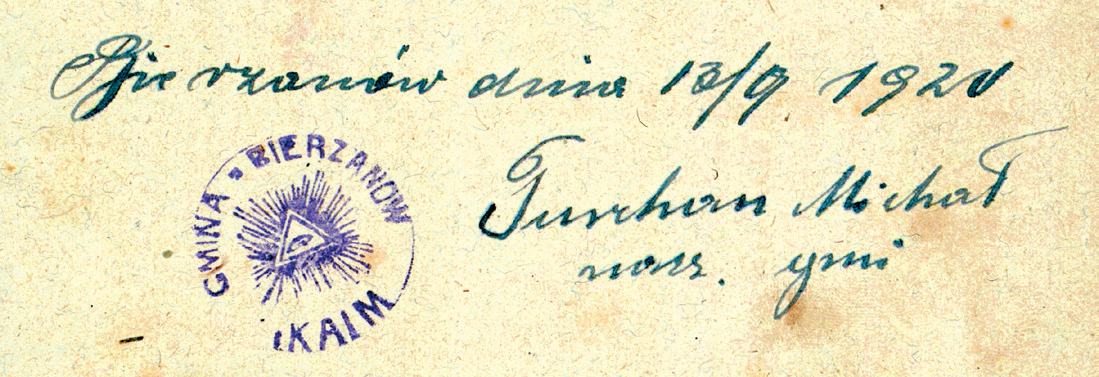 Bierzanów dnia 13/9 1920
GMINA BIERZANÓW
KAIM
Turchan Michał
nacz. gmi